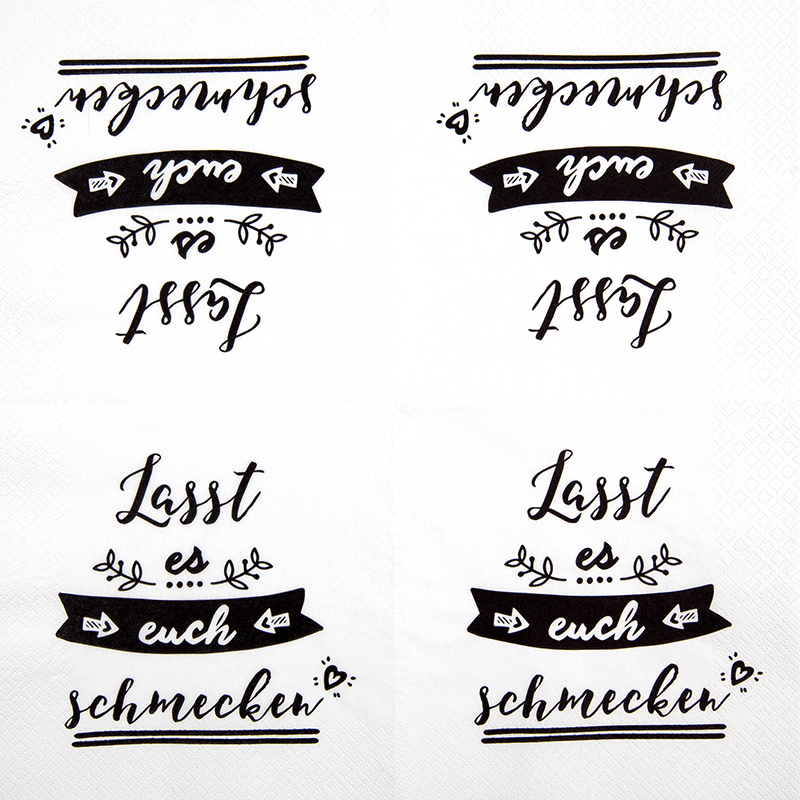 schmecken
euch
es
Lasst
schmecken
euch
es
Lasst
Lasst
es
euch
schmecken
Lasst
es
euch
schmecken